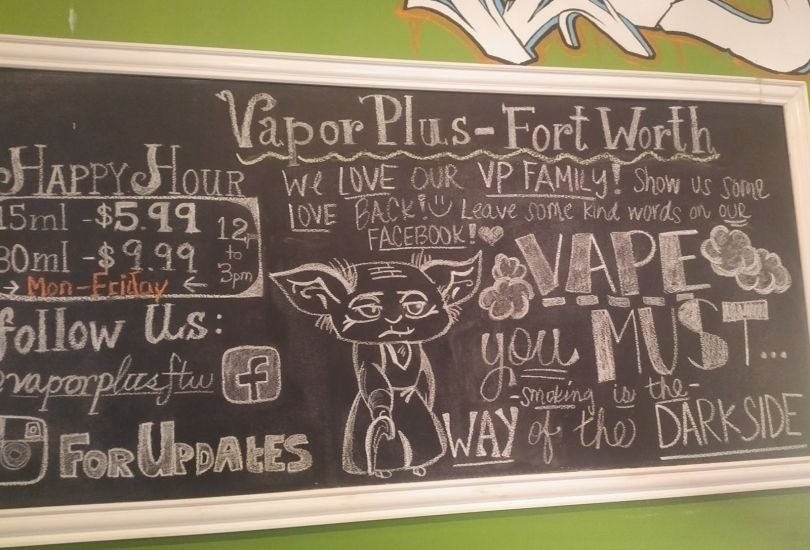 Vapor Plus-Fort Worth
Happy Hour
15ml -$5.99
30ml -$9.99
12pm
to
3pm
→ Mon-Friday ←
follow Us:
@vaporplusftw
For Updates
We LOVE OUR VP FAMILY! Show us some
LOVE BACK! Leave some kind words on our
FACEBOOK!
VAPE
you MUST...
-smoking is the-
WAY of the DARKSIDE